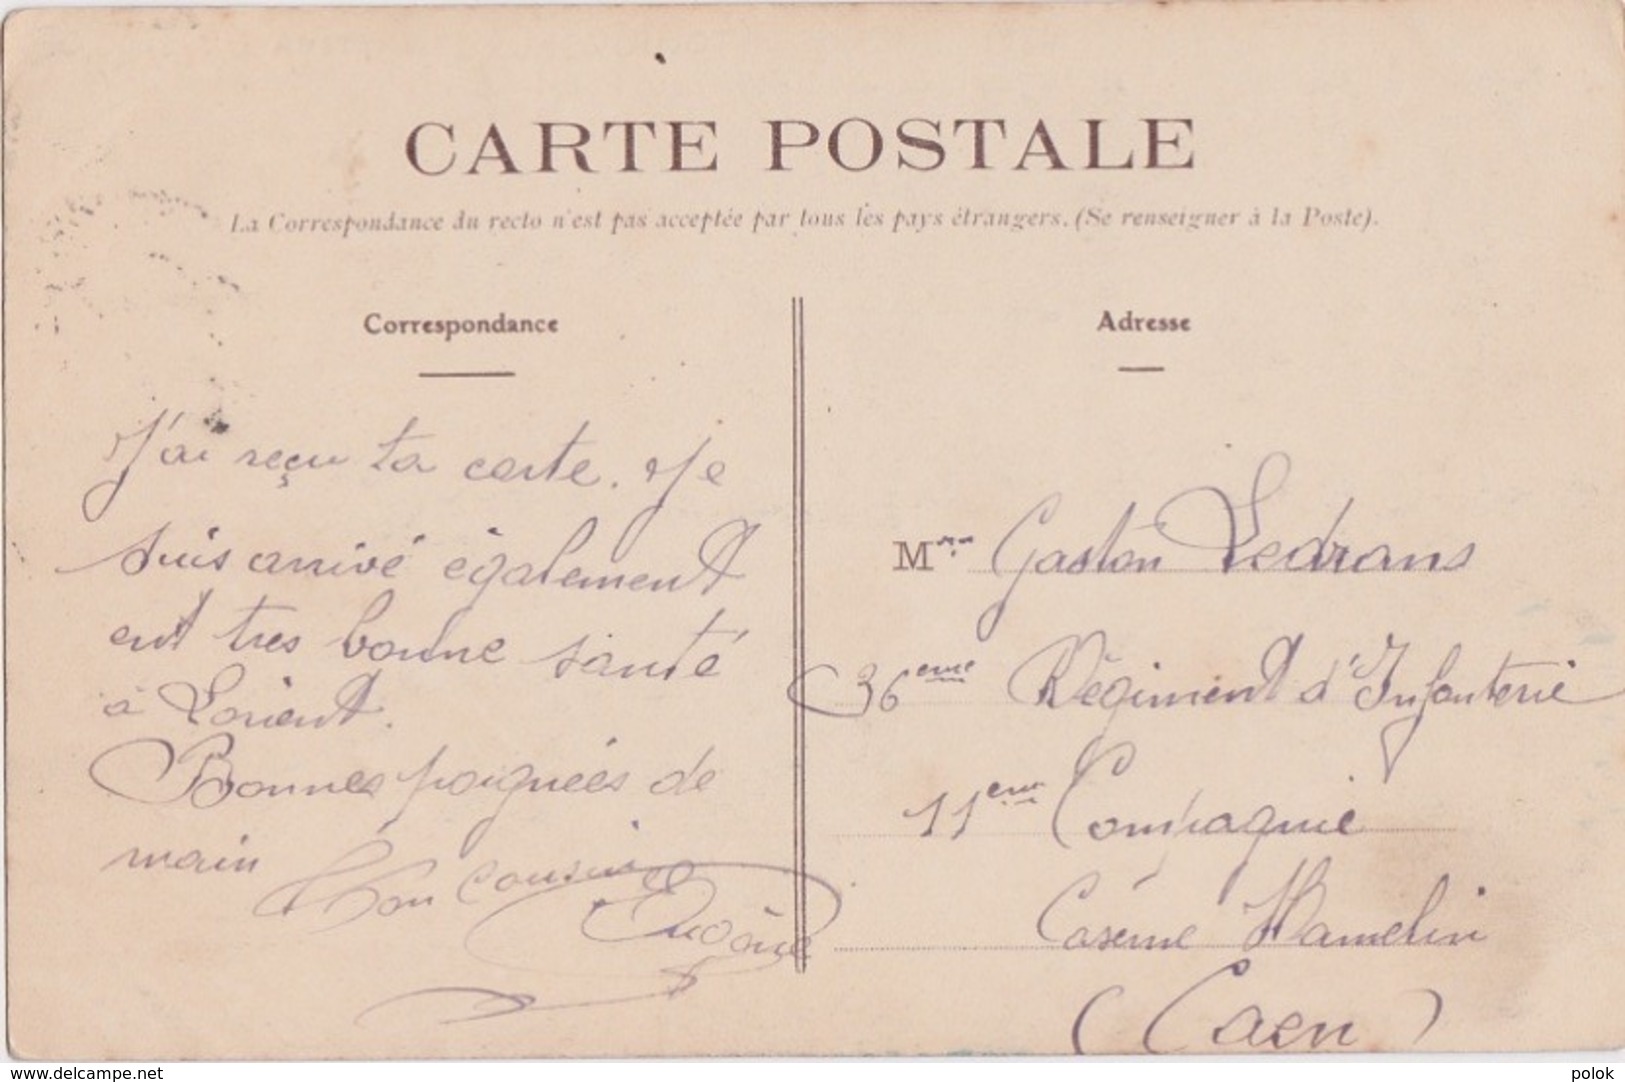 CARTE POSTALE
La Correspondance du recto n'est pas acceptée par tous les pays étrangers. (Se renseigner à la Poste).
Correspondance
J'ai reçu ta carte. Je
suis arrivé également
ent très bonne santé
à Lorient.
Bonnes poignées de
main
Ton cousin
Eugène
Adresse
M Gaston Ledrans
36eme Régiment d'Infanterie
11eme Compagnie
Caserne Hamelin
(Caen)
www.delcampe.net
polok